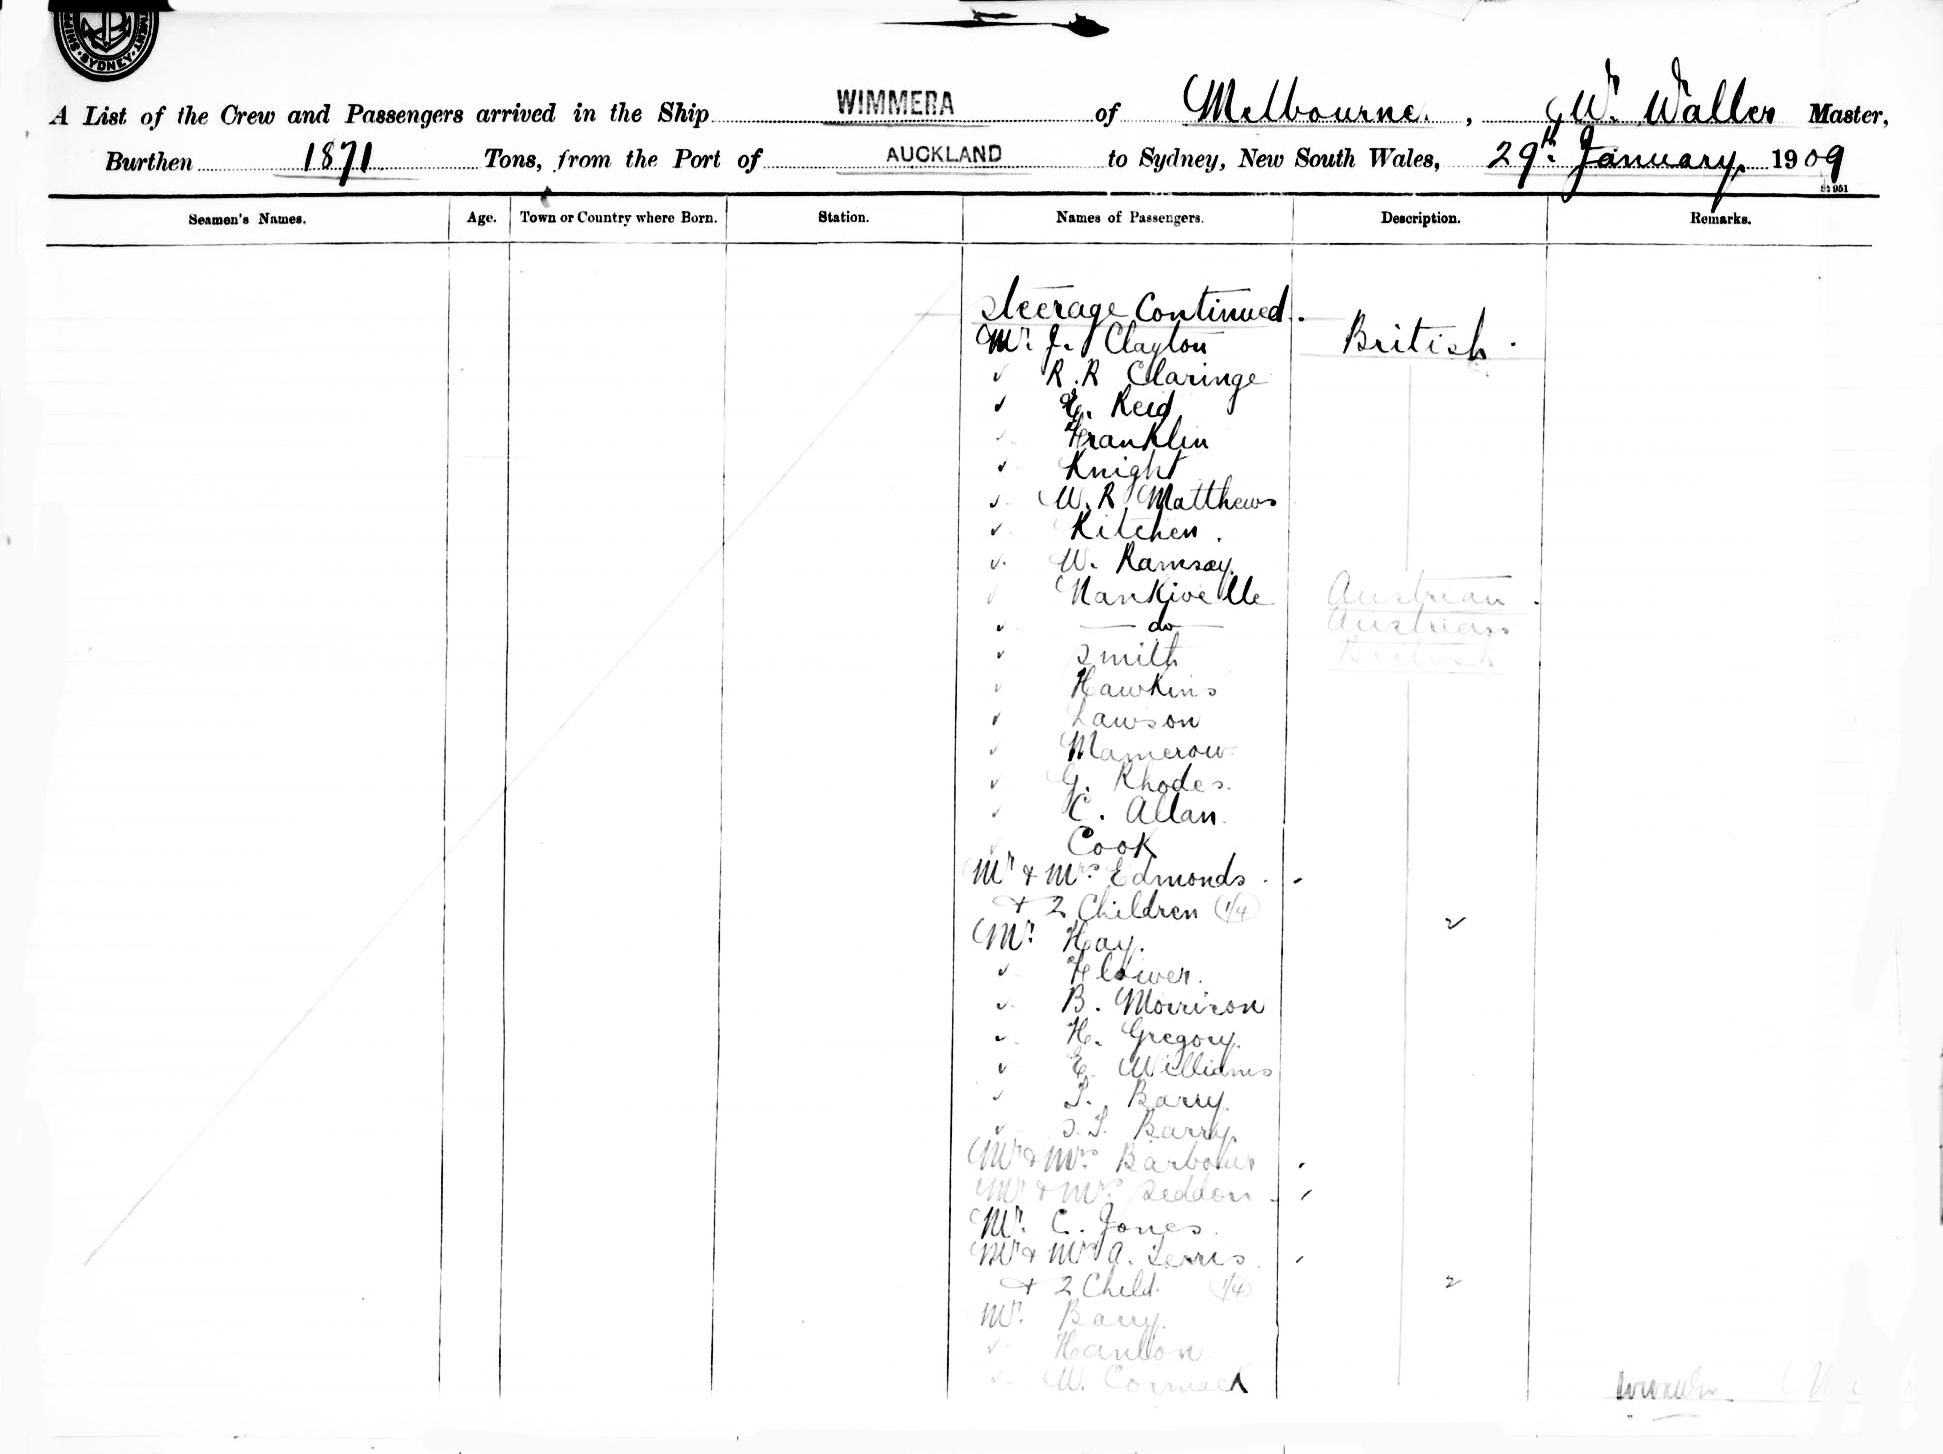 SYDNEY
A List of the Crew and Passengers arrived in the Ship WIMMERA of Melbourne, W. Waller Master,
Burthen 1871 Tons, from the Port of AUCKLAND to Sydney, New South Wales, 29th January, 1909
Seamen's Names. Age. Town or Country where Born. Station. Names of Passengers. Description. Remarks.
Steerage Continued.
Mr. J. Clayton British.
✓ R.R Claringe
✓ G. Reid
✓ Franklin
✓ Knight
✓ W.R. Matthews
✓ Kitchen.
✓ W. Ramsay.
✓ Nankivelle Austrian.
✓ — do — Austrian
✓ Smith British
✓ Hawkins
✓ Lawson
✓ Mamerow
✓ G. Rhodes.
✓ C. Allan.
✓ Cook
Mr & Mrs Edmonds.
+ 2 Children (1/4) 2
Mr. Hay.
✓ Flower.
✓ B. Morrison
✓ H. Gregory.
✓ E. Williams
✓ T. Barry.
✓ S.T. Barry.
Mr & Mrs. Barbour
Mr & Mrs. Seddon
Mr. C. Jones.
Mr & Mrs A. Ferris.
+ 2 Child. (1/4) 2
Mr. Barry.
✓ Hanlon
✓ W. Cormack